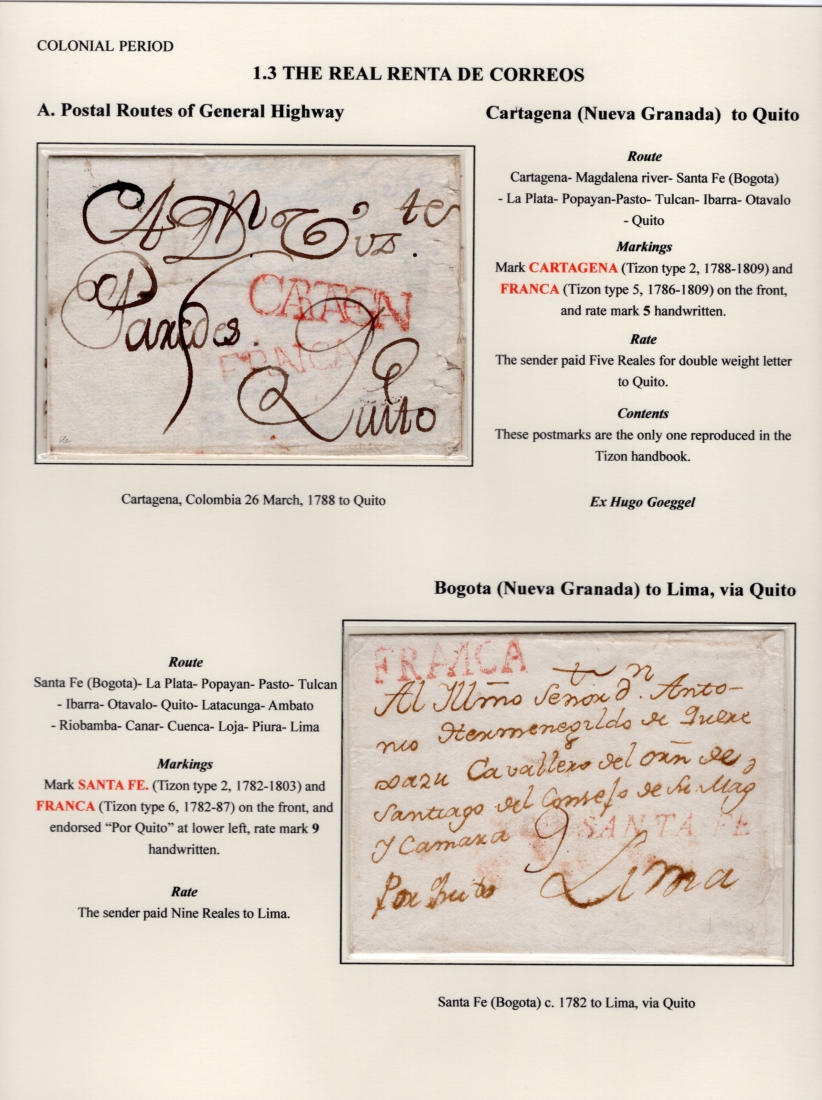 COLONIAL PERIOD
1.3 THE REAL RENTA DE CORREOS
A. Postal Routes of General Highway
Cartagena (Nueva Granada) to Quito
Route
Cartagena- Magdalena river- Santa Fe (Bogota)
- La Plata- Popayan-Pasto- Tulcan- Ibarra- Otavalo
- Quito
Markings
Mark CARTAGENA (Tizon type 2, 1788-1809) and
FRANCA (Tizon type 5, 1786-1809) on the front,
and rate mark 5 handwritten.
Rate
The sender paid Five Reales for double weight letter
to Quito.
Contents
These postmarks are the only one reproduced in the
Tizon handbook.
Ex Hugo Goeggel
A Dn
Paredes.
5
FRANCA
Quito
Cartagena, Colombia 26 March, 1788 to Quito
Bogota (Nueva Granada) to Lima, via Quito
Route
Santa Fe (Bogota)- La Plata- Popayan- Pasto- Tulcan
- Ibarra- Otavalo- Quito- Latacunga- Ambato
- Riobamba- Canar- Cuenca- Loja- Piura- Lima
Markings
Mark SANTA FE. (Tizon type 2, 1782-1803) and
FRANCA (Tizon type 6, 1782-87) on the front, and
endorsed “Por Quito” at lower left, rate mark 9
handwritten.
Rate
The sender paid Nine Reales to Lima.
FRANCA
Al Illmo Señor dn. Anto-
nio Hermenegildo de Quere
zazu Cavallero del orn de
Santiago del Consejo de Su Mag
y Camara 9 SANTA FE
Por Quito Lima
Santa Fe (Bogota) c. 1782 to Lima, via Quito